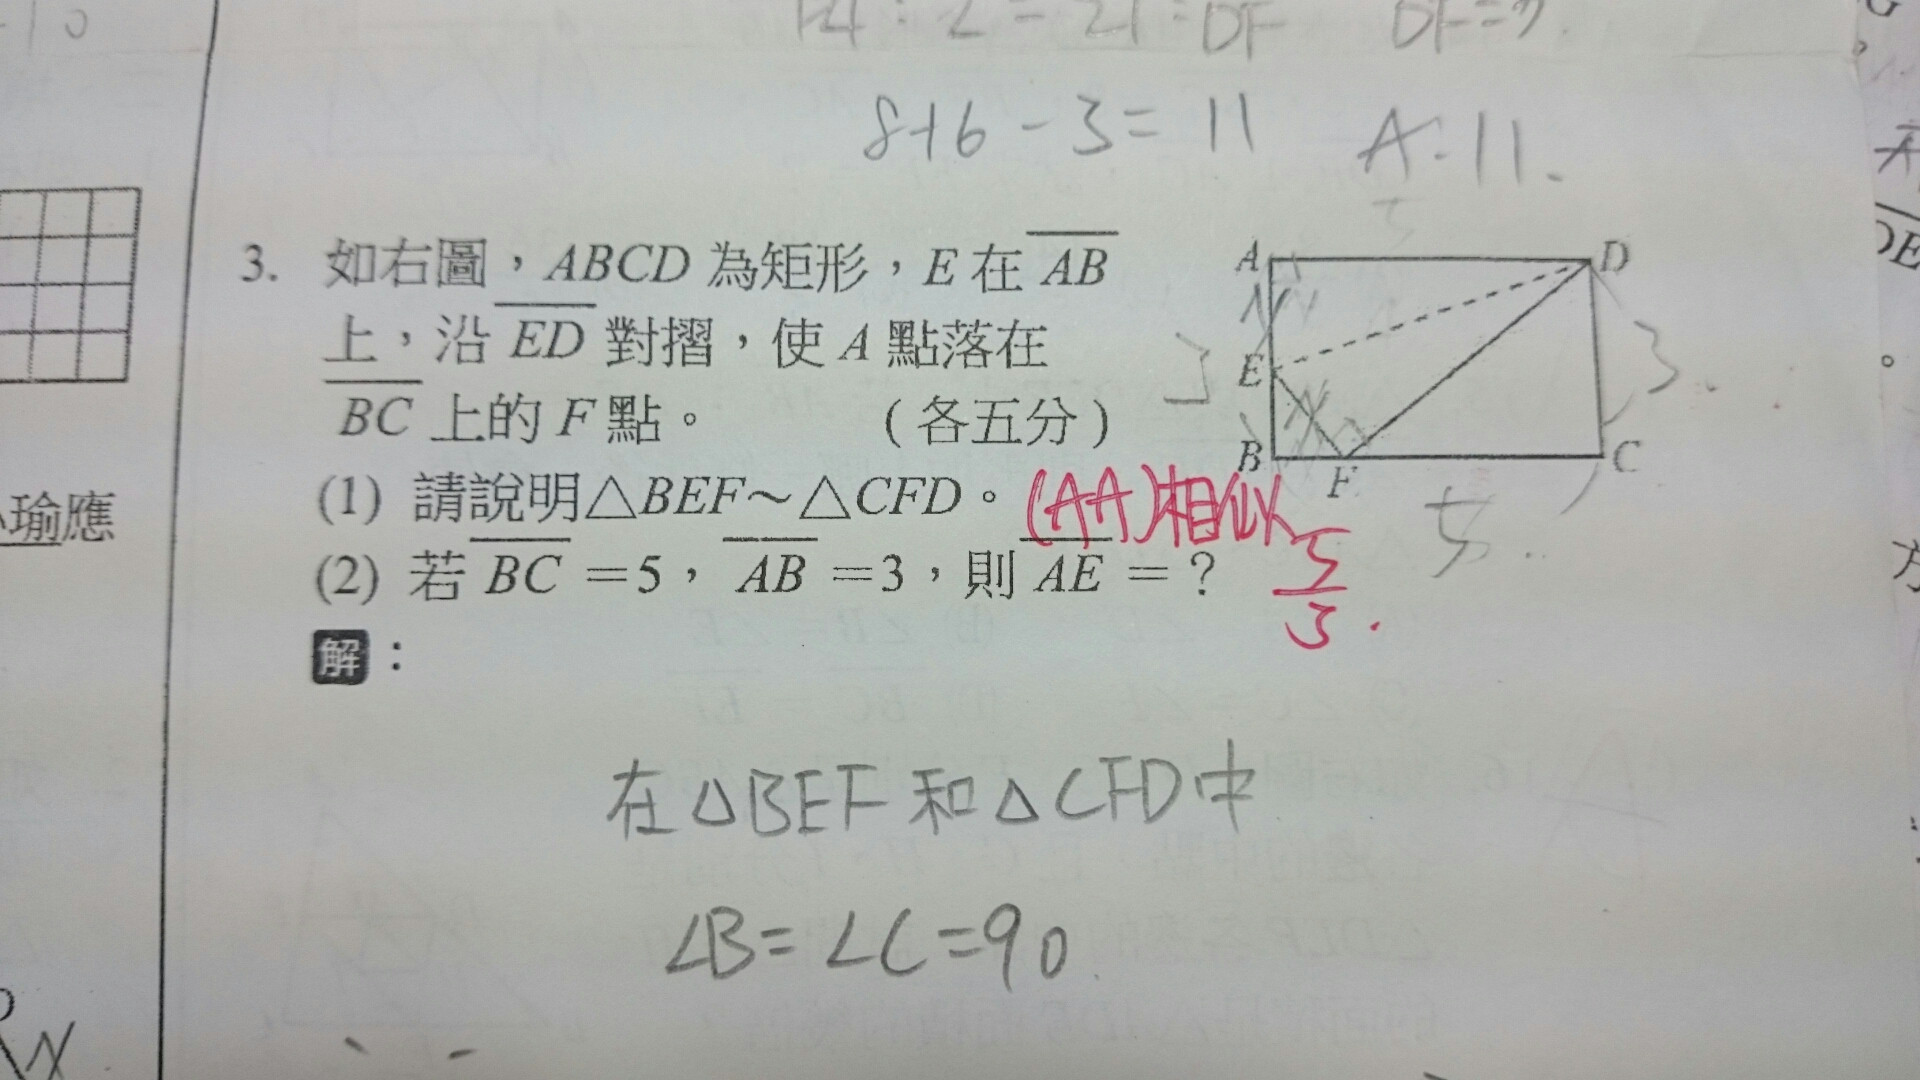 14:2=21:DF DF=3
8+6-3=11 A:11.
3. 如右圖，ABCD 為矩形，E 在 AB
上，沿 ED 對摺，使 A 點落在
BC 上的 F 點。 (各五分)
(1) 請說明△BEF～△CFD。(AA)相似
(2) 若 BC =5， AB =3，則 AE =？ 5/3.
解：
A D
E
B F C
5
3
3.
5
瑜應
在△BEF和△CFD中
∠B=∠C=90